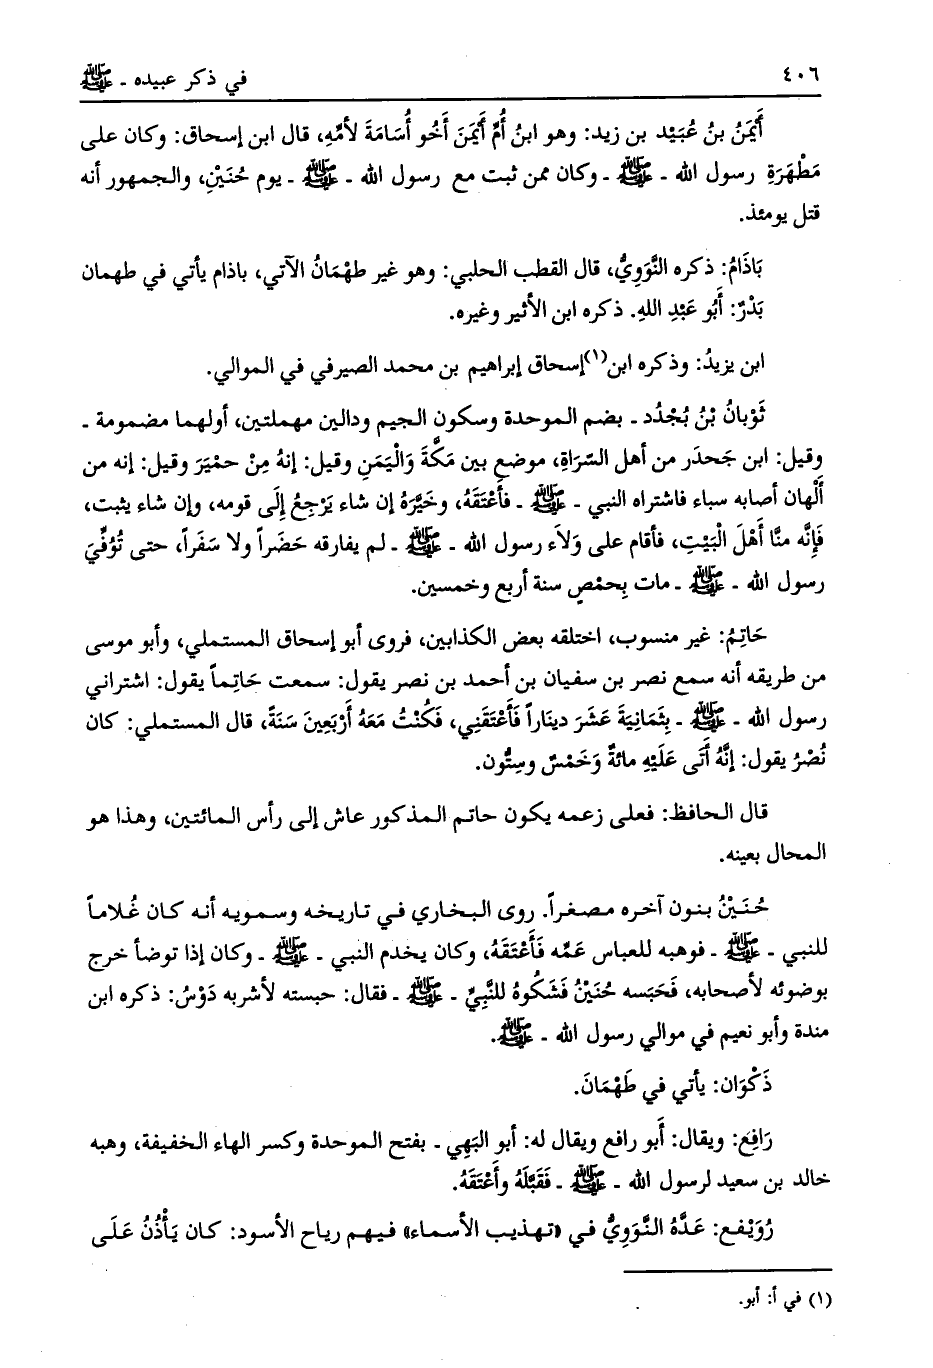 ٤٠٦
في ذكر عبيده ـ ﷺ
أَيْمَنُ بنُ عُبَيْد بن زيد: وهو ابنُ أُمِّ أَيْمَنَ أَخُو أُسَامَةَ لأمِّهِ، قال ابن إسحاق: وكان على
مَطْهَرَةِ رسول الله ـ ﷺ ـ وكان ممن ثبت مع رسول الله ـ ﷺ ـ يوم حُنَيْنٍ، والجمهور أنه
قتل يومئذ.
بَاذَامُ: ذكره النَّوَوِيُّ، قال القطب الحلبي: وهو غير طهْمَانُ الآتي، باذام يأتي في طهمان
بَدْرٌ: أَبُو عَبْدِ اللهِ. ذكره ابن الأثير وغيره.
ابن يزيدُ: وذكره ابن(١) إسحاق إبراهيم بن محمد الصيرفي في الموالي.
ثَوْبانُ بْنُ بُجْدُد ـ بضم الموحدة وسكون الجيم ودالين مهملتين، أولهما مضمومة ـ
وقيل: ابن جَحدَر من أهل السّرَاةِ، موضع بين مَكَّةَ وَالْيَمَنِ وقيل: إنهُ مِنْ حمْيَرَ وقيل: إنه من
أَلْهان أصابه سباء فاشتراه النبي ـ ﷺ ـ فأَعْتَقَهُ، وخَيَّرَهُ إن شاء يَرْجِعُ إلَى قومه، وإن شاء يثبت،
فَإِنَّه منَّا أَهْلَ الْبَيْتِ، فأقام على وَلاَء رسول الله ـ ﷺ ـ لم يفارقه حَضَراً ولا سَفَراً، حتى تُوُفِّيَ
رسول الله ـ ﷺ ـ مات بِحمْصٍ سنة أربع وخمسين.
حَاتِمُ: غير منسوب، اختلقه بعض الكذابين، فروى أبو إسحاق المستملي، وأبو موسى
من طريقه أنه سمع نصر بن سفيان بن أحمد بن نصر يقول: سمعت حَاتِماً يقول: اشتراني
رسول الله ـ ﷺ ـ بِثَمَانِيَةَ عَشَرَ ديناراً فَأَعْتَقَنِي، فَكُنْتُ مَعَهُ أَرْبَعِينَ سَنَةً، قال المستملي: كان
نُصْرُ يقول: إنَّهُ أَتَى عَلَيْهِ مائةٌ وَخَمْسٌ وسِتُّون.
قال الحافظ: فعلى زعمه يكون حاتم المذكور عاش إلى رأس المائتين، وهذا هو
المحال بعينه.
حُنَيْنُ بنون آخره مصغراً. روى البخاري في تاريخه وسمويه أنه كان غُلاماً
للنبي ـ ﷺ ـ فوهبه للعباس عَمِّه فَأَعْتَقَهُ، وكان يخدم النبي ـ ﷺ ـ وكان إذا توضأ خرج
بوضوئه لأصحابه، فَحَبَسه حُنَيْنُ فَشَكُوهُ للنَّبِيِّ ـ ﷺ ـ فقال: حبسته لأشربه دَوْسُ: ذكره ابن
مندة وأبو نعيم في موالي رسول الله ـ ﷺ.
ذَكْوَان: يأتي في طَهْمَانَ.
رَافِع: ويقال: أَبو رافع ويقال له: أبو البَهِي ـ بفتح الموحدة وكسر الهاء الخفيفة، وهبه
خالد بن سعيد لرسول الله ـ ﷺ ـ فَقَبَّلَهُ وأَعْتَقَهُ.
رُوَيْفع: عَدَّهُ النَّوَوِيُّ في «تهذيب الأسماء» فيهم رياح الأسود: كان يَأْذُنُ عَلَى
(١) في أ: أبو.